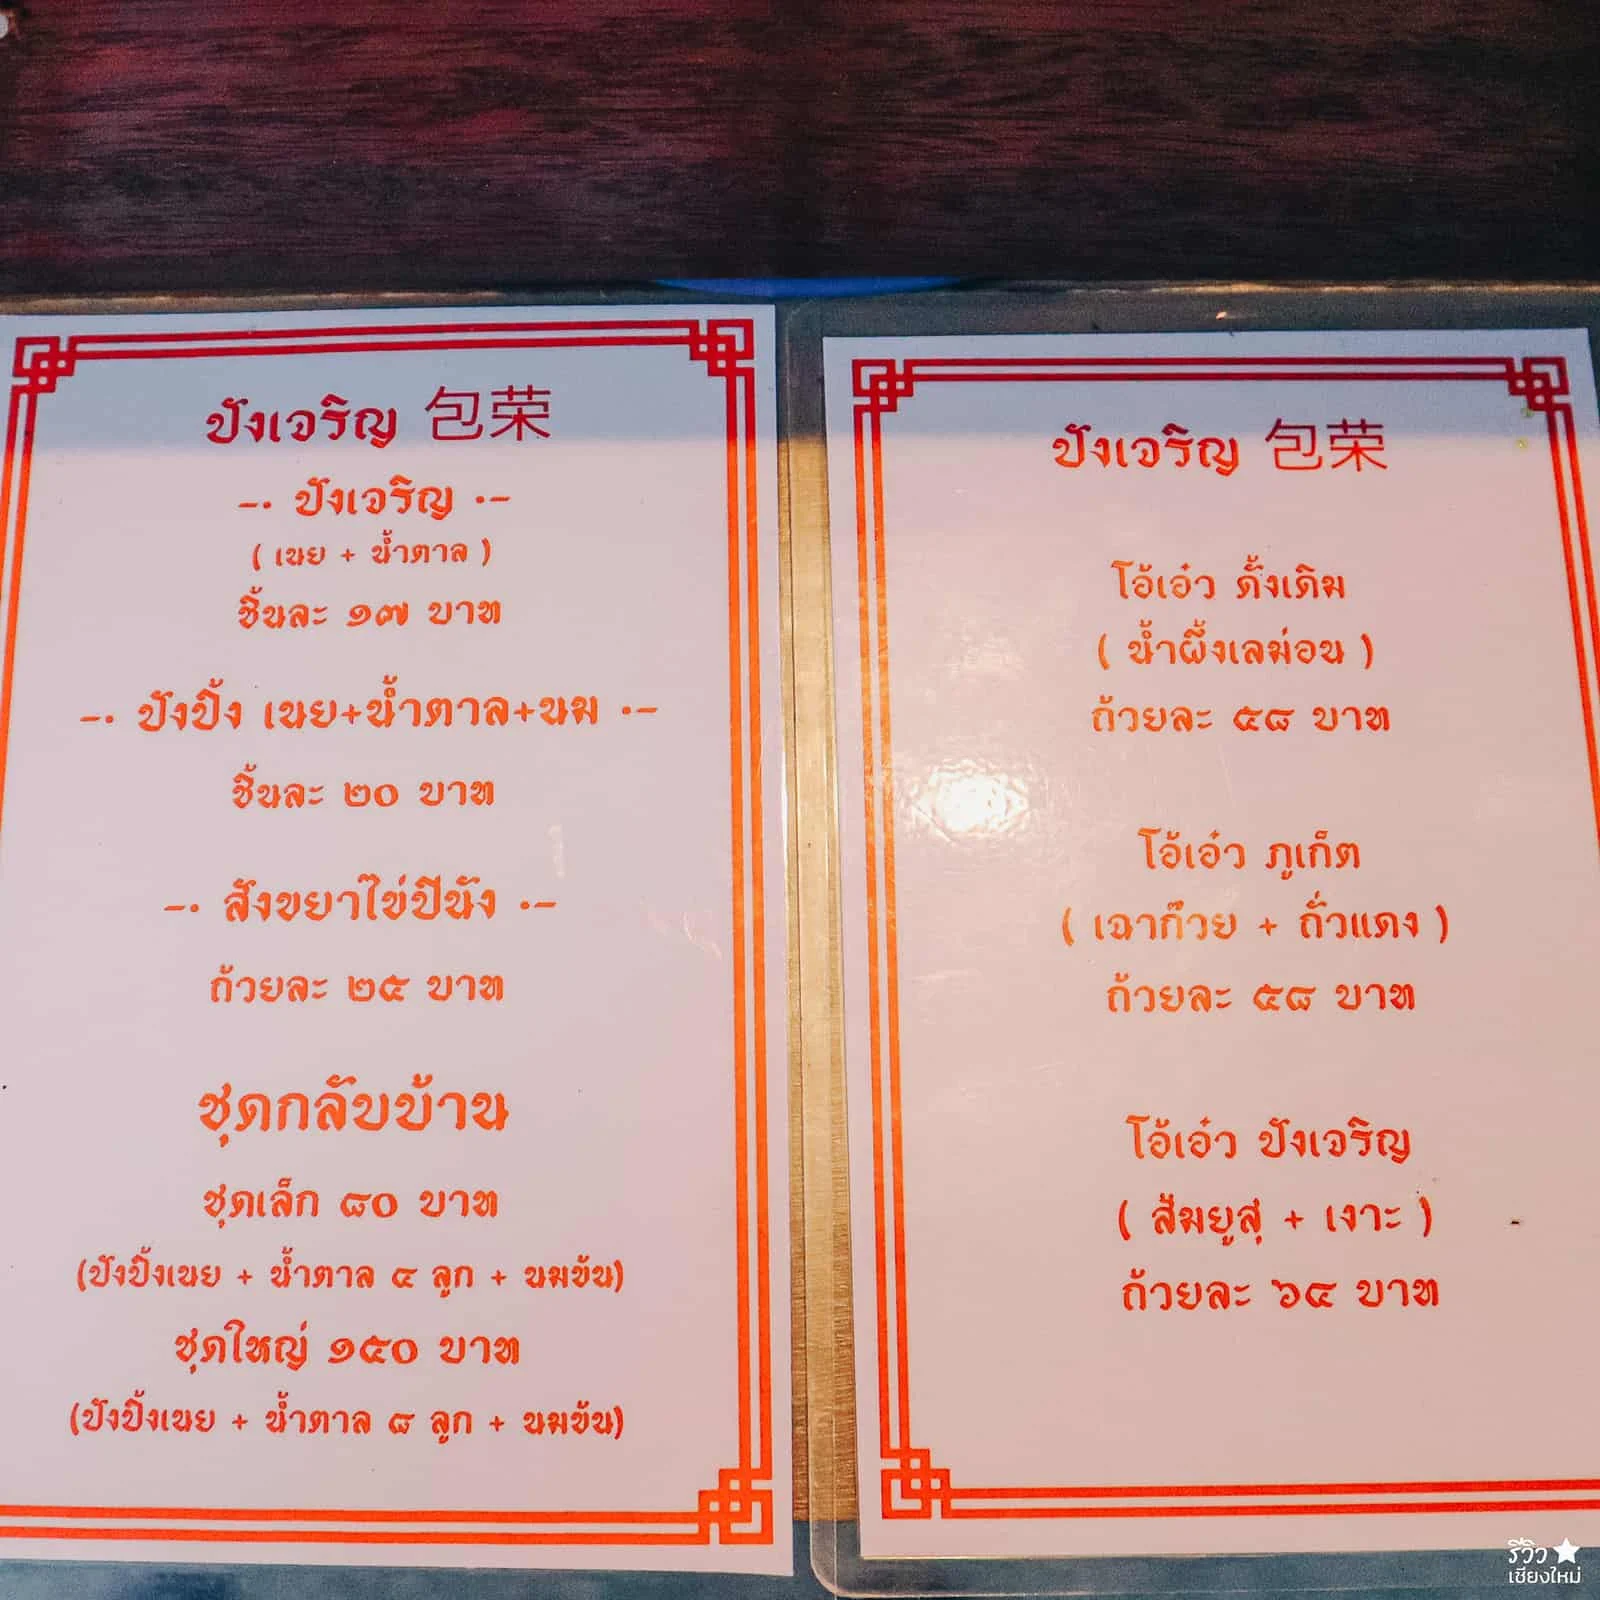 ปังเจริญ 包荣
-· ปังเจริญ ·-
( เนย + น้ำตาล )
ชิ้นละ ๑๗ บาท
-· ปังปิ้ง เนย+น้ำตาล+นม ·-
ชิ้นละ ๒๐ บาท
-· สังขยาไข่ปีนัง ·-
ถ้วยละ ๒๕ บาท
ชุดกลับบ้าน
ชุดเล็ก ๘๐ บาท
(ปังปิ้งเนย + น้ำตาล ๔ ลูก + นมข้น)
ชุดใหญ่ ๑๕๐ บาท
(ปังปิ้งเนย + น้ำตาล ๘ ลูก + นมข้น)
ปังเจริญ 包荣
โอ้เอ๋ว ดั้งเดิม
( น้ำผึ้งเลม่อน )
ถ้วยละ ๕๘ บาท
โอ้เอ๋ว ภูเก็ต
( เฉาก๊วย + ถั่วแดง )
ถ้วยละ ๕๘ บาท
โอ้เอ๋ว ปังเจริญ
( ส้มยูสุ + เงาะ )
ถ้วยละ ๖๔ บาท
รีวิว
เชียงใหม่